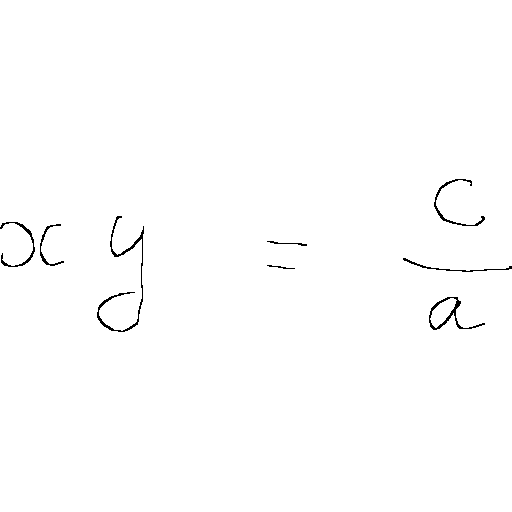 xy = \frac{c}{a}